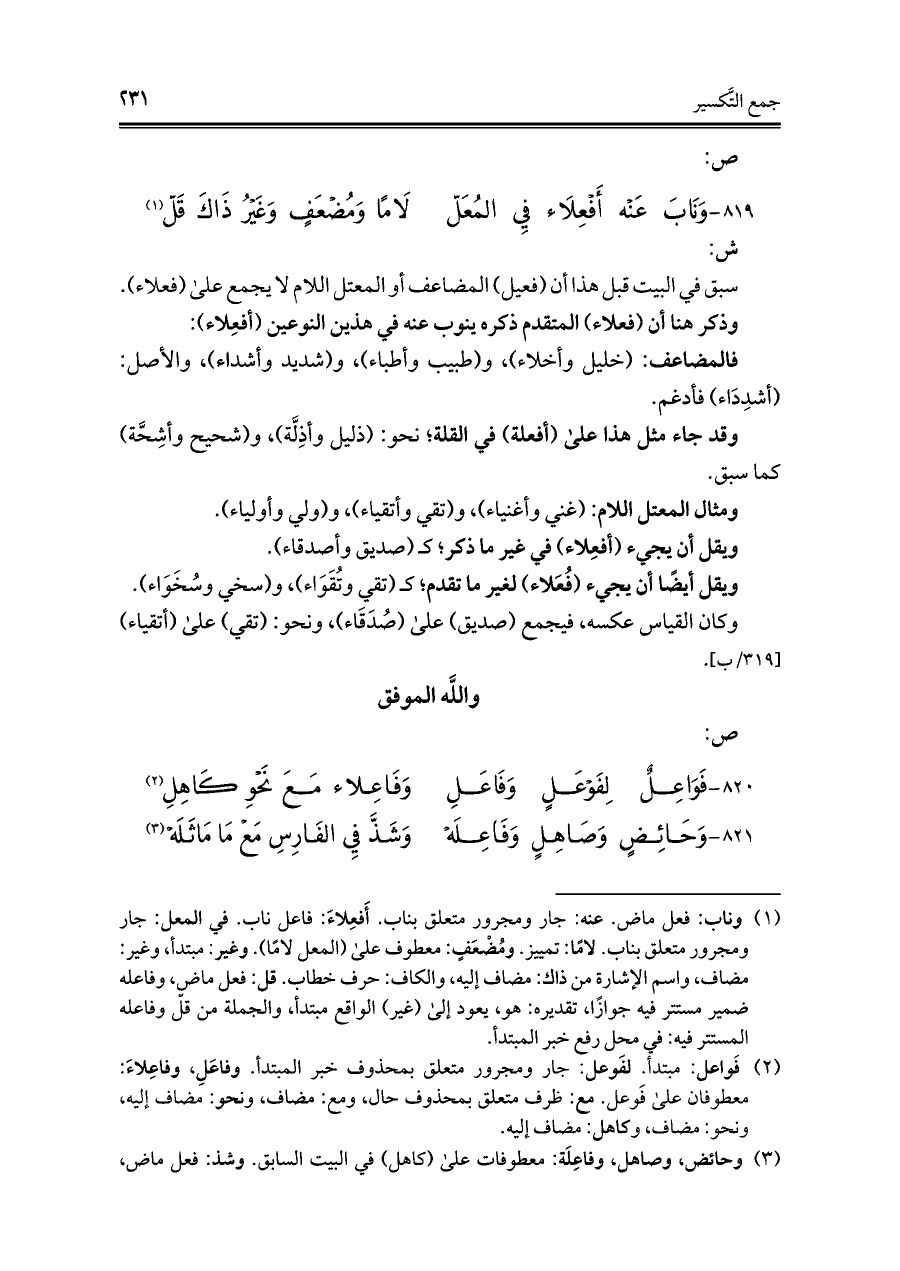 جمع التَّكسير ٢٣١
ص:
٨١٩-وَنَابَ عَنْه أَفْعِلَاء فِي المُعَلّ لَامًا وَمُضْعَفٍ وَغَيْرُ ذَاكَ قَلّ(١)
ش:
سبق في البيت قبل هذا أن (فعيل) المضاعف أو المعتل اللام لا يجمع علىٰ (فعلاء).
وذكر هنا أن (فعلاء) المتقدم ذكره ينوب عنه في هذين النوعين (أفعِلاء):
فالمضاعف: (خليل وأخلاء)، و(طبيب وأطباء)، و(شديد وأشداء)، والأصل:
(أشدِدَاء) فأدغم.
وقد جاء مثل هذا علىٰ (أفعلة) في القلة؛ نحو: (ذليل وأذِلَّة)، و(شحيح وأشِحَّة)
كما سبق.
ومثال المعتل اللام: (غني وأغنياء)، و(تقي وأتقياء)، و(ولي وأولياء).
ويقل أن يجيء (أفعِلاء) في غير ما ذكر؛ كـ (صديق وأصدقاء).
ويقل أيضًا أن يجيء (فُعَلاء) لغير ما تقدم؛ كـ(تقي وتُقَوَاء)، و(سخي وسُخَوَاء).
وكان القياس عكسه، فيجمع (صديق) علىٰ (صُدَقَاء)، ونحو: (تقي) علىٰ (أتقياء)
[٣١٩/ ب].
واللَّه الموفق
ص:
٨٢٠-فَوَاعِــلٌ لِفَوْعَــلٍ وَفَاعَــلِ وَفَاعِـلاء مَــعَ نَحْوِ كَـاهِلِ(٢)
٨٢١-وَحَـائِـضٍ وَصَـاهِـلٍ وَفَاعِــلَهْ وَشَـذَّ فِي الفَـارِسِ مَعْ مَا مَاثَـلَهْ(٣)
(١) وناب: فعل ماض. عنه: جار ومجرور متعلق بناب. أَفعِلاءَ: فاعل ناب. في المعل: جار
ومجرور متعلق بناب. لامًا: تمييز. ومُضْعَفٍ: معطوف علىٰ (المعل لامًا). وغير: مبتدأ، وغير:
مضاف، واسم الإشارة من ذاك: مضاف إليه، والكاف: حرف خطاب. قل: فعل ماض، وفاعله
ضمير مستتر فيه جوازًا، تقديره: هو، يعود إلىٰ (غير) الواقع مبتدأ، والجملة من قلّ وفاعله
المستتر فيه: في محل رفع خبر المبتدأ.
(٢) فَواعل: مبتدأ. لفَوعل: جار ومجرور متعلق بمحذوف خبر المبتدأ. وفاعَلِ، وفاعِلاءَ:
معطوفان علىٰ فَوعل. مع: ظرف متعلق بمحذوف حال، ومع: مضاف، ونحو: مضاف إليه،
ونحو: مضاف، وكاهل: مضاف إليه.
(٣) وحائض، وصاهل، وفاعِلَة: معطوفات علىٰ (كاهل) في البيت السابق. وشذ: فعل ماض،